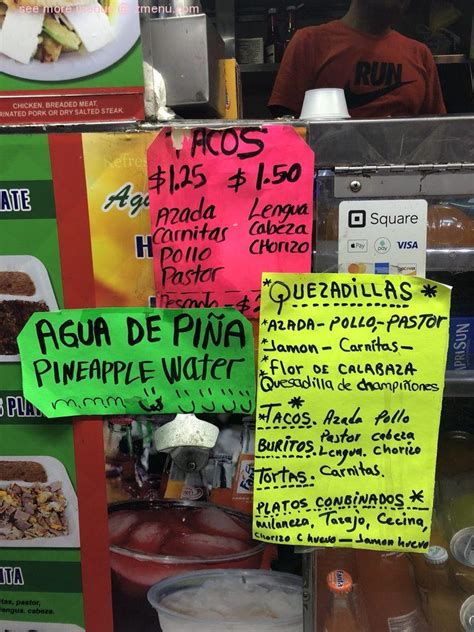 see more
zmenu.com
CHICKEN, BREADED MEAT,
INATED PORK OR DRY SALTED STEAK
RUN
TACOS
$1.25 $1.50
Azada Lengua
Carnitas Cabeza
Pollo Chorizo
Pastor
Pescado - $
Square
Pay
pay
VISA
DISCOVER
AGUA DE PIÑA
PINEAPPLE Water
m.mm
*QUEZADILLAS*
*AZADA-POLLO,-PASTOR
*Jamon-Carnitas-
*FLOR DE CALABAZA
Quesadilla de champiñones
*TACOS. Azada Pollo
Pastor cabeza
BURITOS. Lengua. Chorizo
TORTAS. Carnitas.
PLATOS COMBINADOS*
milaneza, Tasajo, Cecina,
CHORIZO C HUEVO - Jamon huevo
Refres
Agu
H
ATE
PLA
ITA
as, pastor,
engua, cabeza.
SUN
Fanta